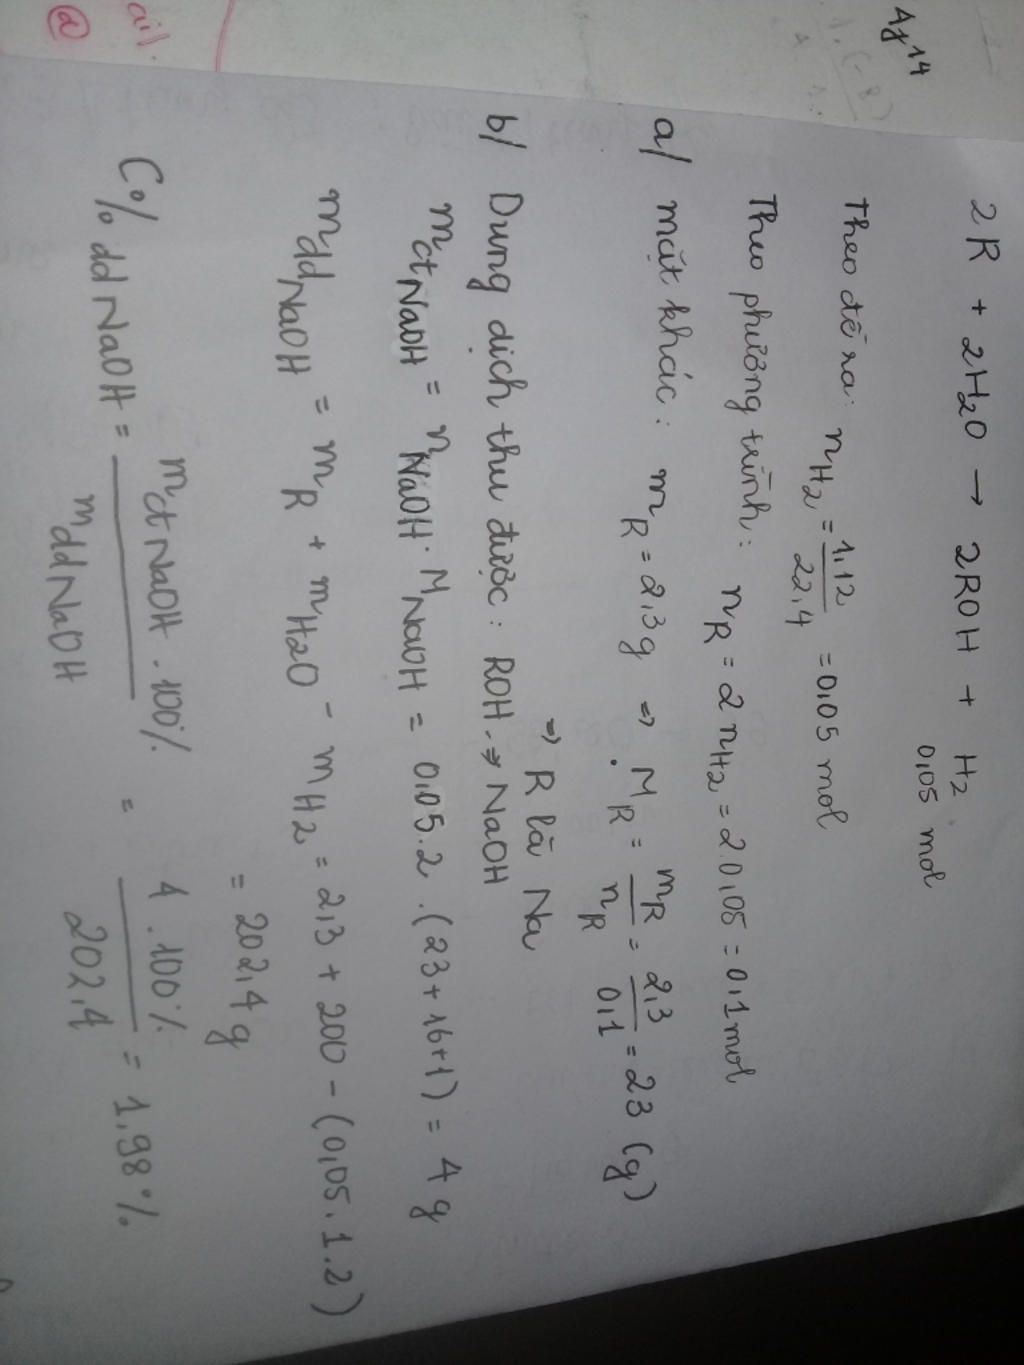 Ag 14
2R + 2H2O → 2ROH + H2
0,05 mol
Theo đề ra: nH2 = 1,12/22,4 = 0,05 mol
Theo phương trình: nR = 2nH2 = 2.0,05 = 0,1 mol
a/ mặt khác: mR = 2,3g => MR = mR/nR = 2,3/0,1 = 23 (g)
=> R là Na
b/ Dung dịch thu được: ROH => NaOH
mctNaOH = nNaOH . MNaOH = 0,05.2.(23+16+1) = 4g
mddNaOH = mR + mH2O - mH2 = 2,3 + 200 - (0,05.1.2)
= 202,4g
C% ddNaOH = mctNaOH.100%/mddNaOH = 4.100%/202,4 = 1,98%
ail.
@